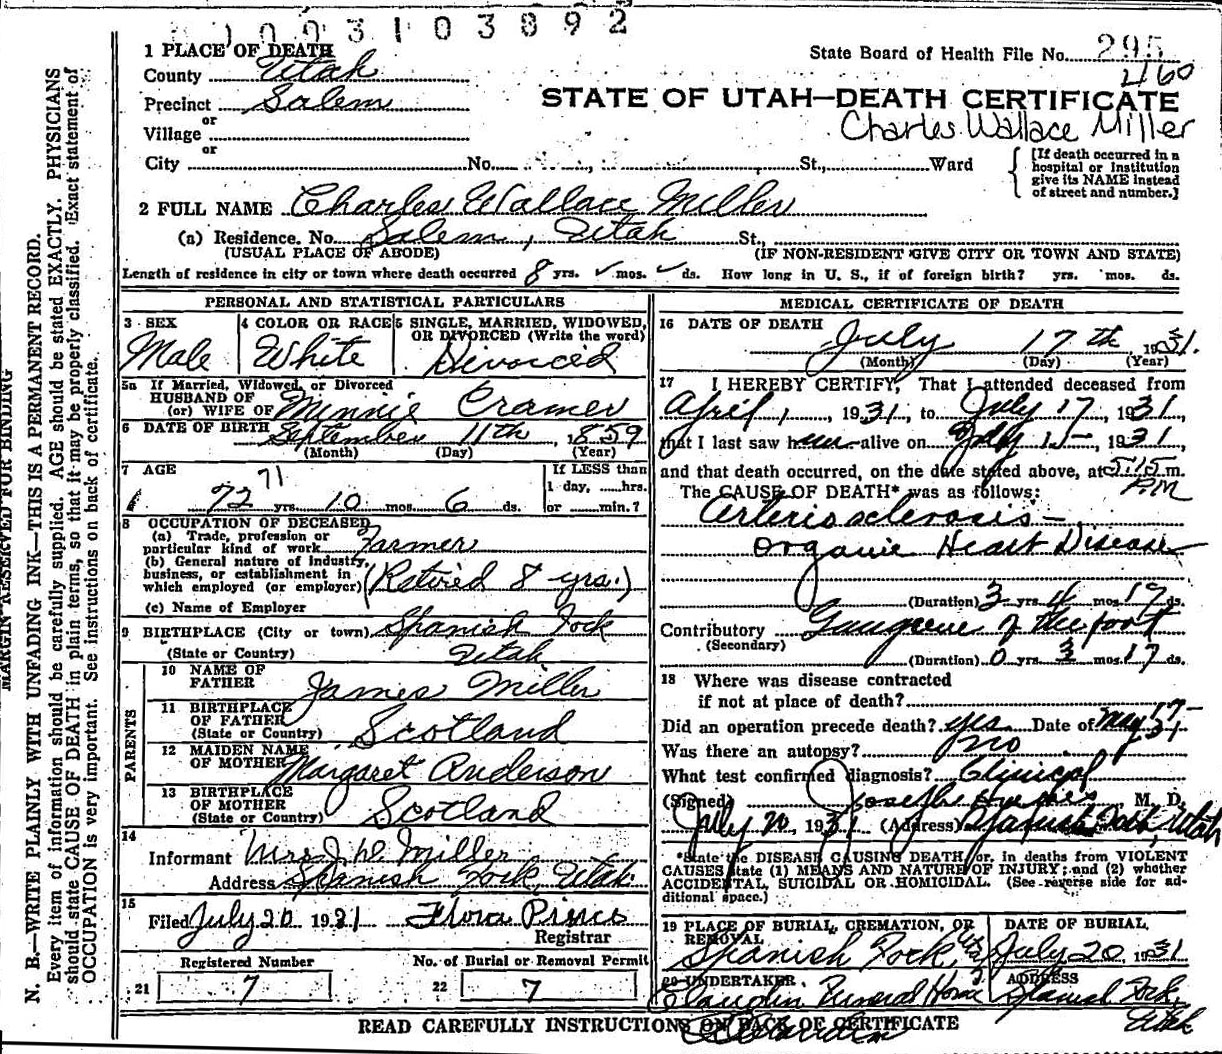 1003103892
State Board of Health File No. 295
460
STATE OF UTAH—DEATH CERTIFICATE
Charles Wallace Miller
1 PLACE OF DEATH
County Utah
Precinct Salem
or
Village
or
City No. St., Ward
[If death occurred in a
hospital or institution
give its NAME instead
of street and number.]
2 FULL NAME Charles Wallace Miller
(a) Residence, No. Salem, Utah St.,
(USUAL PLACE OF ABODE) (IF NON-RESIDENT GIVE CITY OR TOWN AND STATE)
Length of residence in city or town where death occurred 8 yrs. ✓ mos. ✓ ds. How long in U. S., if of foreign birth? yrs. mos. ds.
PERSONAL AND STATISTICAL PARTICULARS
3 SEX
Male
4 COLOR OR RACE
White
5 SINGLE, MARRIED, WIDOWED,
OR DIVORCED (Write the word)
Divorced
5a If Married, Widowed, or Divorced
HUSBAND OF
(or) WIFE OF Minnie Cramer
6 DATE OF BIRTH September 11th, 1859
(Month) (Day) (Year)
7 AGE
71
72 yrs. 10 mos. 6 ds.
If LESS than
1 day, ......hrs.
or ......min.?
8 OCCUPATION OF DECEASED
(a) Trade, profession or
particular kind of work Farmer
(b) General nature of industry,
business, or establishment in
which employed (or employer) (Retired 8 yrs.)
(c) Name of Employer
9 BIRTHPLACE (City or town) Spanish Fork
(State or Country) Utah
PARENTS
10 NAME OF
FATHER James Miller
11 BIRTHPLACE
OF FATHER
(State or Country) Scotland
12 MAIDEN NAME
OF MOTHER Margaret Anderson
13 BIRTHPLACE
OF MOTHER
(State or Country) Scotland
14
Informant Mrs J. W. Miller
Address Spanish Fork, Utah
15
Filed July 20 1931 Flora Pierce
Registrar
Registered Number
21 7
No. of Burial or Removal Permit
22 7
MEDICAL CERTIFICATE OF DEATH
16 DATE OF DEATH
July 17th 1931.
(Month) (Day) (Year)
17 I HEREBY CERTIFY, That I attended deceased from
April 1, 1931, to July 17, 1931,
that I last saw him alive on July 15, 1931,
and that death occurred, on the date stated above, at 5:15 m.
P.M
The CAUSE OF DEATH* was as follows:
Arteriosclerosis —
Organic Heart Disease
(Duration) 3 yrs. 4 mos. 19 ds.
Contributory Gangrene of the foot
(Secondary)
(Duration) 0 yrs. 3 mos. 17 ds.
18 Where was disease contracted
if not at place of death?
Did an operation precede death? yes Date of May 17-31
Was there an autopsy? no
What test confirmed diagnosis? Clinical
(Signed) Joseph Hughes, M. D.
July 20, 1931 (Address) Spanish Fork, Utah
*State the DISEASE CAUSING DEATH or, in deaths from VIOLENT
CAUSES state (1) MEANS AND NATURE OF INJURY; and (2) whether
ACCIDENTAL, SUICIDAL OR HOMICIDAL. (See reverse side for ad-
ditional space.)
19 PLACE OF BURIAL, CREMATION, OR
REMOVAL
Spanish Fork, Uta
DATE OF BURIAL
July 20, 1931
20 UNDERTAKER
Claudin Funeral Home
ADDRESS
Spanish Fork,
Utah
READ CAREFULLY INSTRUCTIONS ON BACK OF CERTIFICATE
MARGIN RESERVED FOR BINDING
N. B.—WRITE PLAINLY WITH UNFADING INK—THIS IS A PERMANENT RECORD.
Every item of information should be carefully supplied. AGE should be stated EXACTLY. PHYSICIANS
should state CAUSE OF DEATH in plain terms, so that it may be properly classified. Exact statement of
OCCUPATION is very important. See instructions on back of certificate.